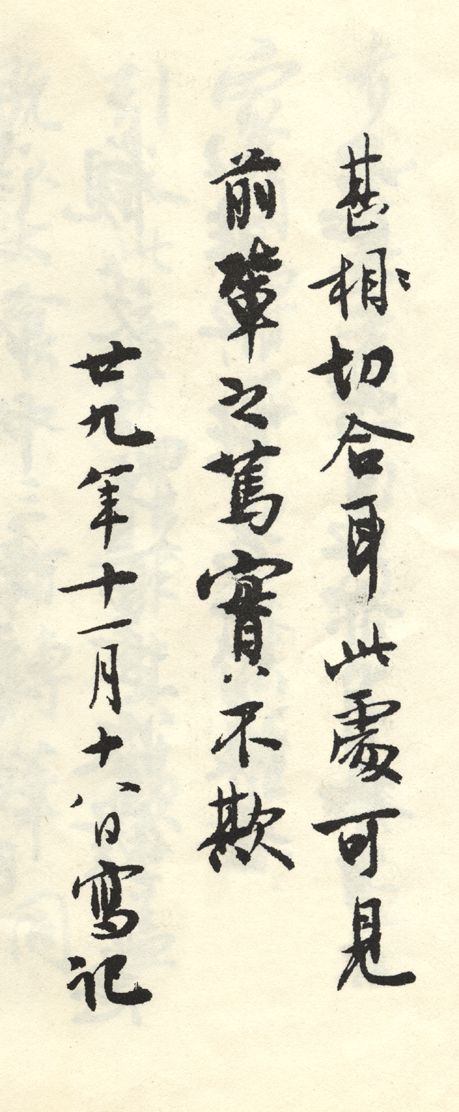 甚相切合耳此處可見
前輩之篤實不欺
廿九年十一月十八日寫記